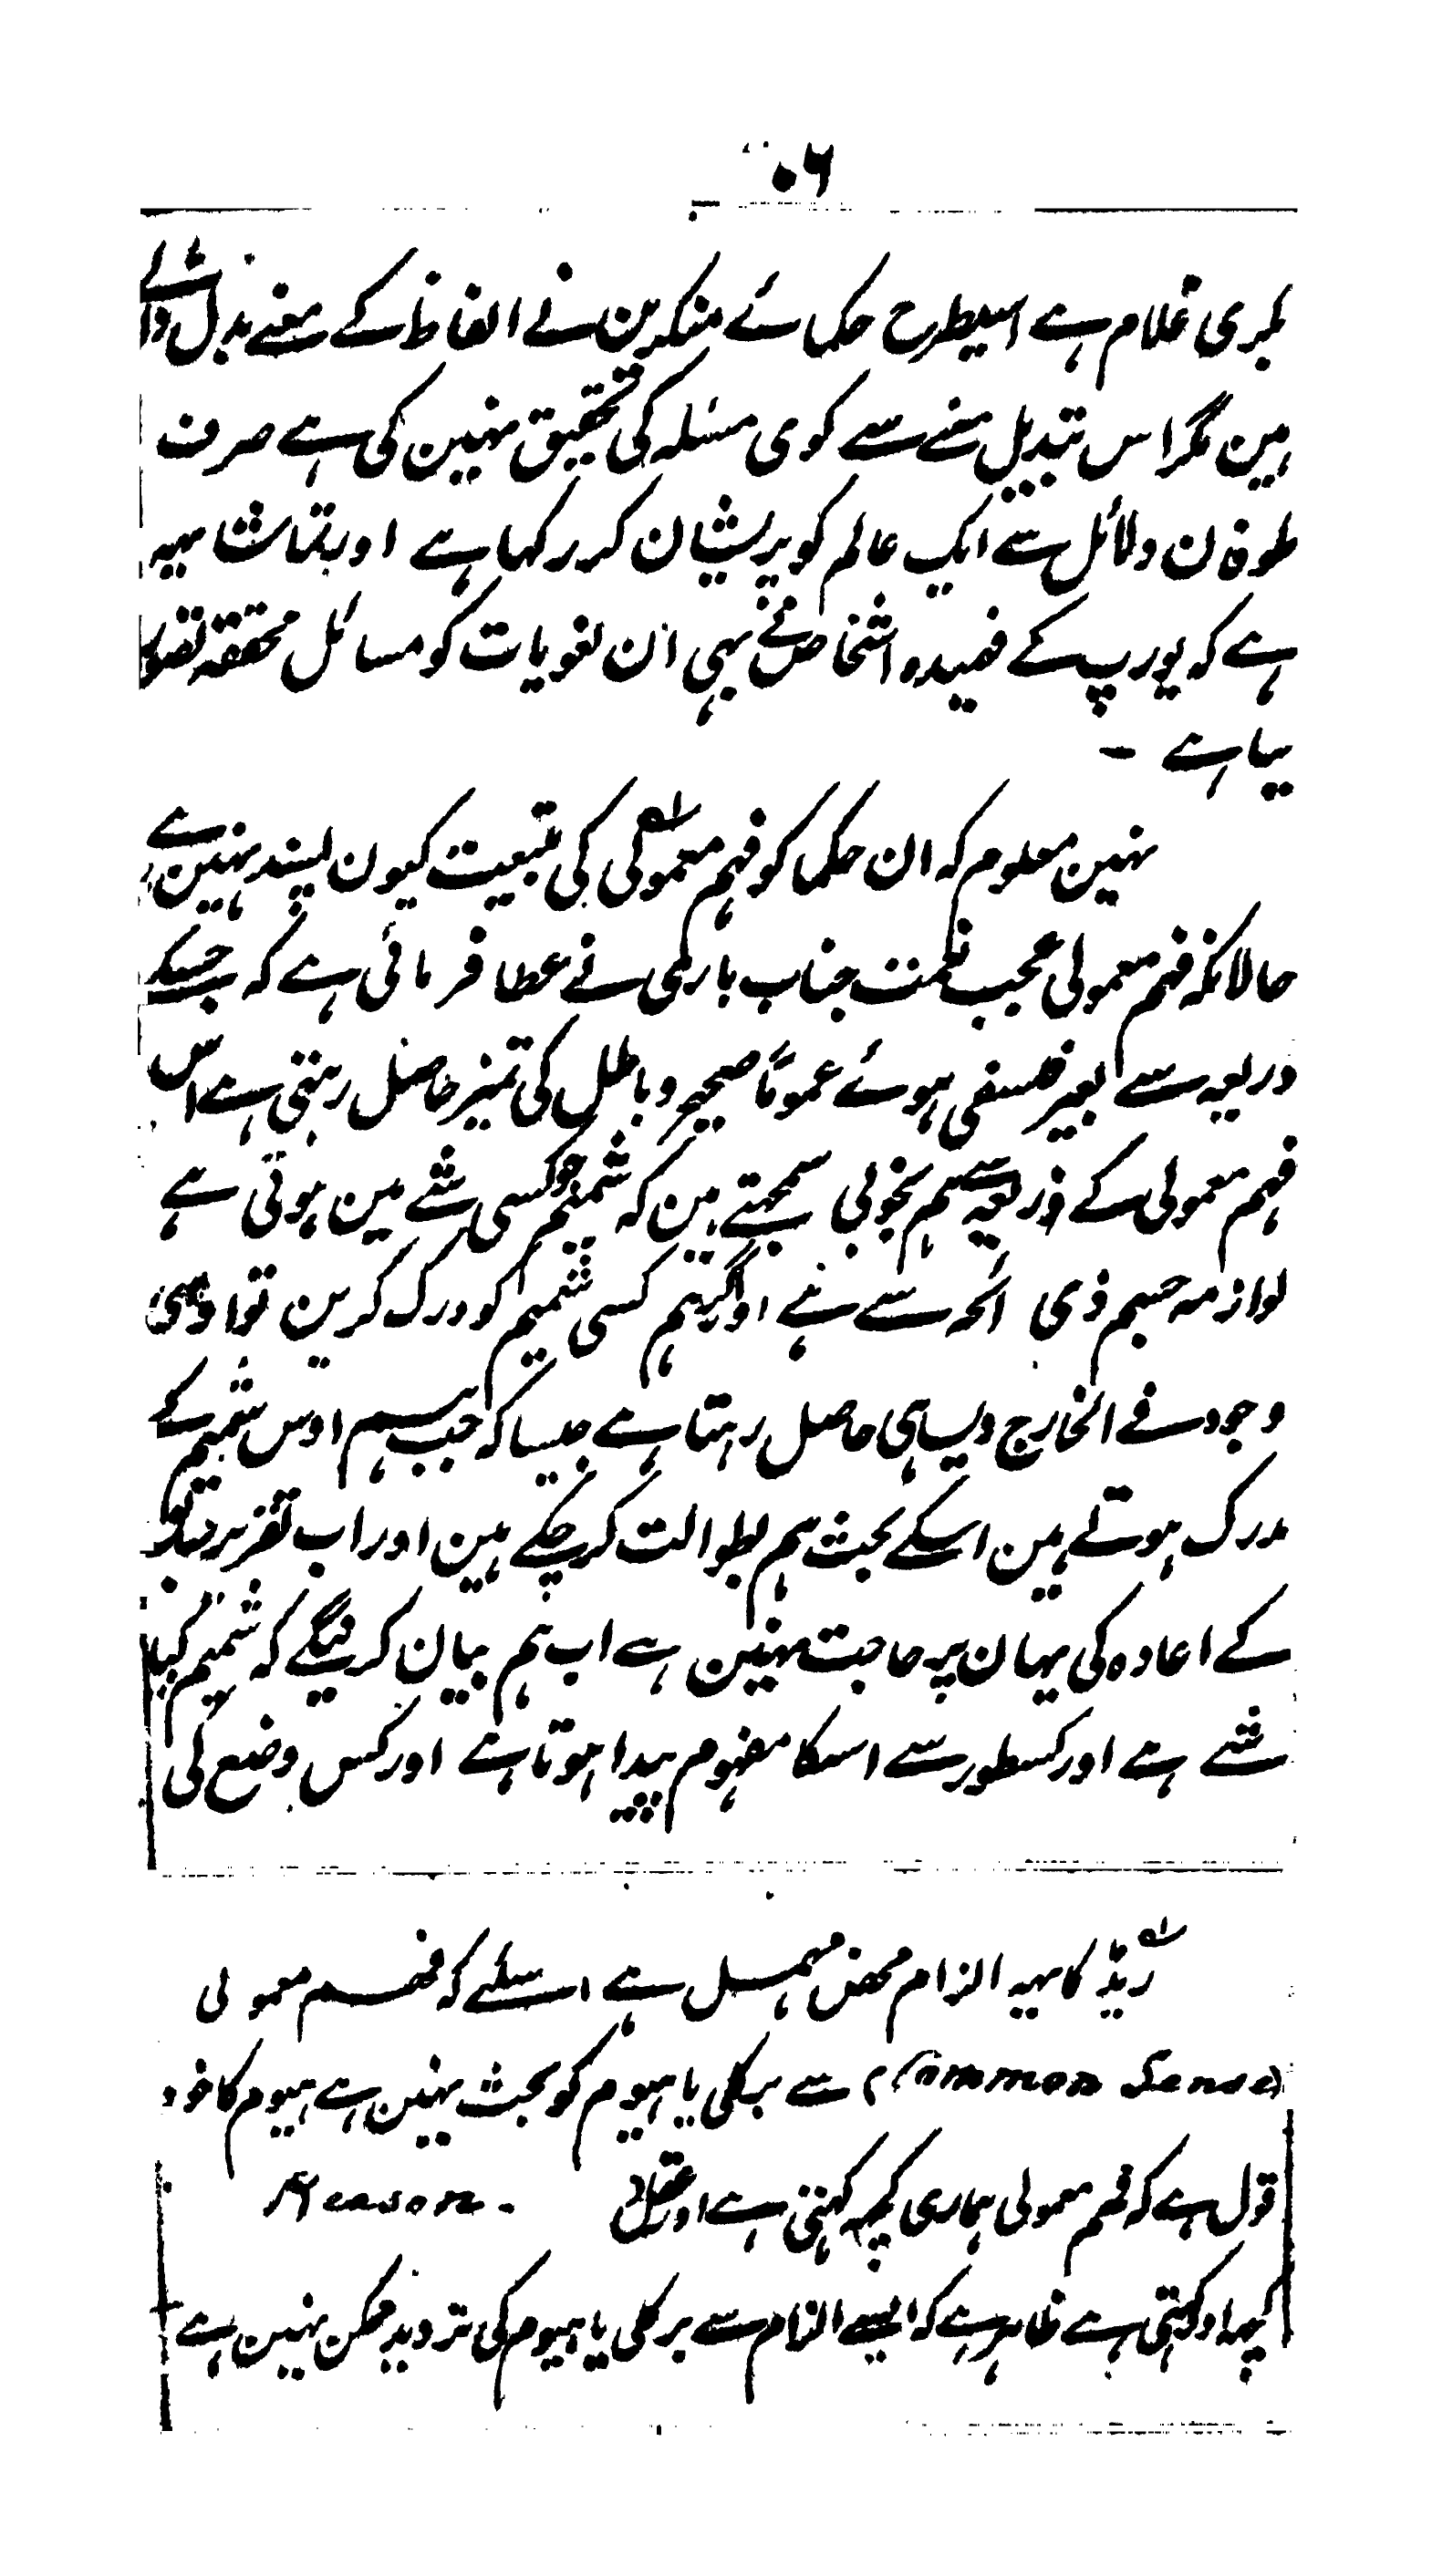 ۵۶
بکری غلام ہے اسیطرح حکمائے منکرین نے الفاظ کے معنے بدل ڈالے
ہین مگر اس تبدیل معنے سے کوی مسئلہ کی تحقیق نہین کی ہے صرف
طوفان دلائل سے ایک عالم کو پریشان کر رکہا ہے اور تماشا یہہ
ہے کہ یورپ کے فہمیدہ اشخاص نے بہی ان لغویات کو مسائل محققہ تصور
کیا ہے -
نہین معلوم کہ ان حکما کو فہم معمولی کی تبعیت کیون پسند نہین ہے
حالانکہ فہم معمولی عجب نعمت جناب باری نے عطا فرمائی ہے کہ جسکے
ذریعہ سے بغیر فلسفی ہوئے عموماً صحیح و باطل کی تمیز حاصل رہتی ہے اس
فہم معمولی کے ذریعہ سے ہم بخوبی سمجہتے ہین کہ شمیم جو کسی شے مین ہوتی ہے
لوازمہ جسم ذی رائحہ سے ہے اور اگر ہم کسی شمیم کو درک نکرین تو اوسی
وجود فے الخارج ویسا ہی حاصل رہتا ہے جیسا کہ جب ہم اوس شمیم کے
مدرک ہوتے ہین اسکے بحث ہم بطوالت کر چکے ہین اور اب تقریر سابق
کے اعادہ کی یہان پر حاجت نہین ہے اب ہم بیان کرینگے کہ شمیم کیا
شے ہے اور کسطور سے اسکا مفہوم پیدا ہوتا ہے اور کس وضع کی
لہ ریڈ کا یہہ الزام محض مہمل ہے اسلئے کہ فہم معمولی
(Common Sense) سے برکلی یا ہیوم کو بحث نہین ہے ہیوم کا خود
قول ہے کہ فہم معمولی ہماری کچہہ کہتی ہے اور عقل Reason.
کچہہ اور کہتی ہے ظاہر ہے کہ ایسے الزام سے برکلی یا ہیوم کی تردید ممکن نہین ہے